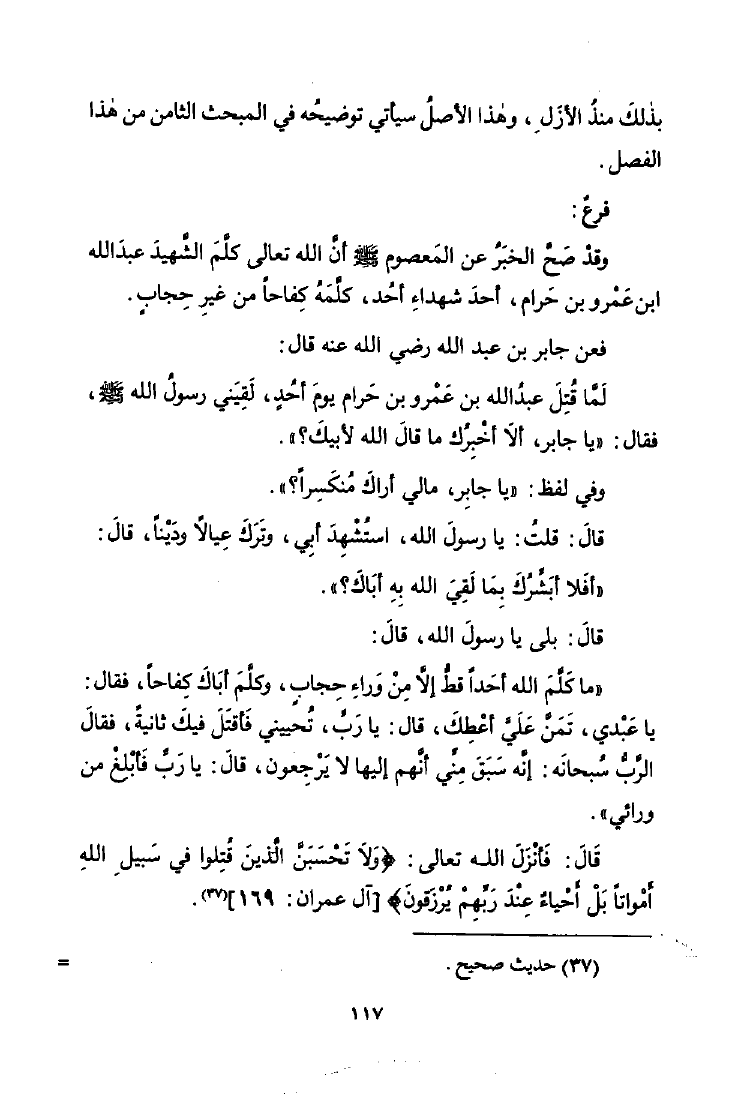 بذٰلكَ منذُ الأزَلِ، وهٰذا الأصلُ سيأتي توضيحُه في المبحث الثامن من هٰذا
الفصل.
فرعٌ:
وقدْ صَحَّ الخبَرُ عن المَعصوم ﷺ أنَّ الله تعالى كلَّمَ الشَّهيدَ عبدَالله
ابن عَمْرو بن حَرام، أحدَ شهداءِ أحُد، كلَّمَهُ كِفاحاً من غيرِ حِجابٍ.
فعن جابر بن عبد الله رضي الله عنه قال:
لَمَّا قُتِلَ عبدُالله بن عَمْرو بن حَرام يومَ أحُدٍ، لَقِيَني رسولُ الله ﷺ،
فقال: «يا جابر، ألَا أخْبِرُك ما قالَ الله لأبيكَ؟».
وفي لفظ: «يا جابِر، مالي أراكَ مُنكَسِراً؟».
قالَ: قلتُ: يا رسولَ الله، استُشْهِدَ أبي، وتَرَكَ عِيالاً ودَيْناً، قالَ:
«أفَلا أبَشِّرُكَ بِمَا لَقِيَ الله بِهِ أبَاكَ؟».
قالَ: بلى يا رسولَ الله، قالَ:
«ما كَلَّمَ الله أحَداً قطُّ إلَّا مِنْ وَراءِ حِجابٍ، وكلَّمَ أبَاكَ كِفاحاً، فقال:
يا عَبْدي، تَمَنَّ عَلَيَّ أعْطِكَ، قال: يا رَبُّ، تُحييني فَأقتَلَ فيكَ ثانيةً، فقالَ
الرَّبُّ سُبحانَه: إنَّه سَبَقَ مِنِّي أنَّهم إليها لا يَرْجعون، قالَ: يا رَبِّ فَأبْلِغْ من
ورائي».
قَالَ: فَأنْزَلَ اللـه تعالى: ﴿وَلَا تَحْسَبَنَّ الَّذينَ قُتِلوا في سَبيلِ اللهِ
أَمْواتاً بَلْ أَحْياءٌ عِنْدَ رَبِّهِمْ يُرْزَقونَ﴾ [آل عمران: ١٦٩](٣٧).
(٣٧) حديث صحيح. =
١١٧